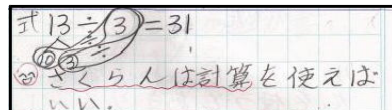 式 13÷3=31
10 3
さくらんは計算を使えば
いい.